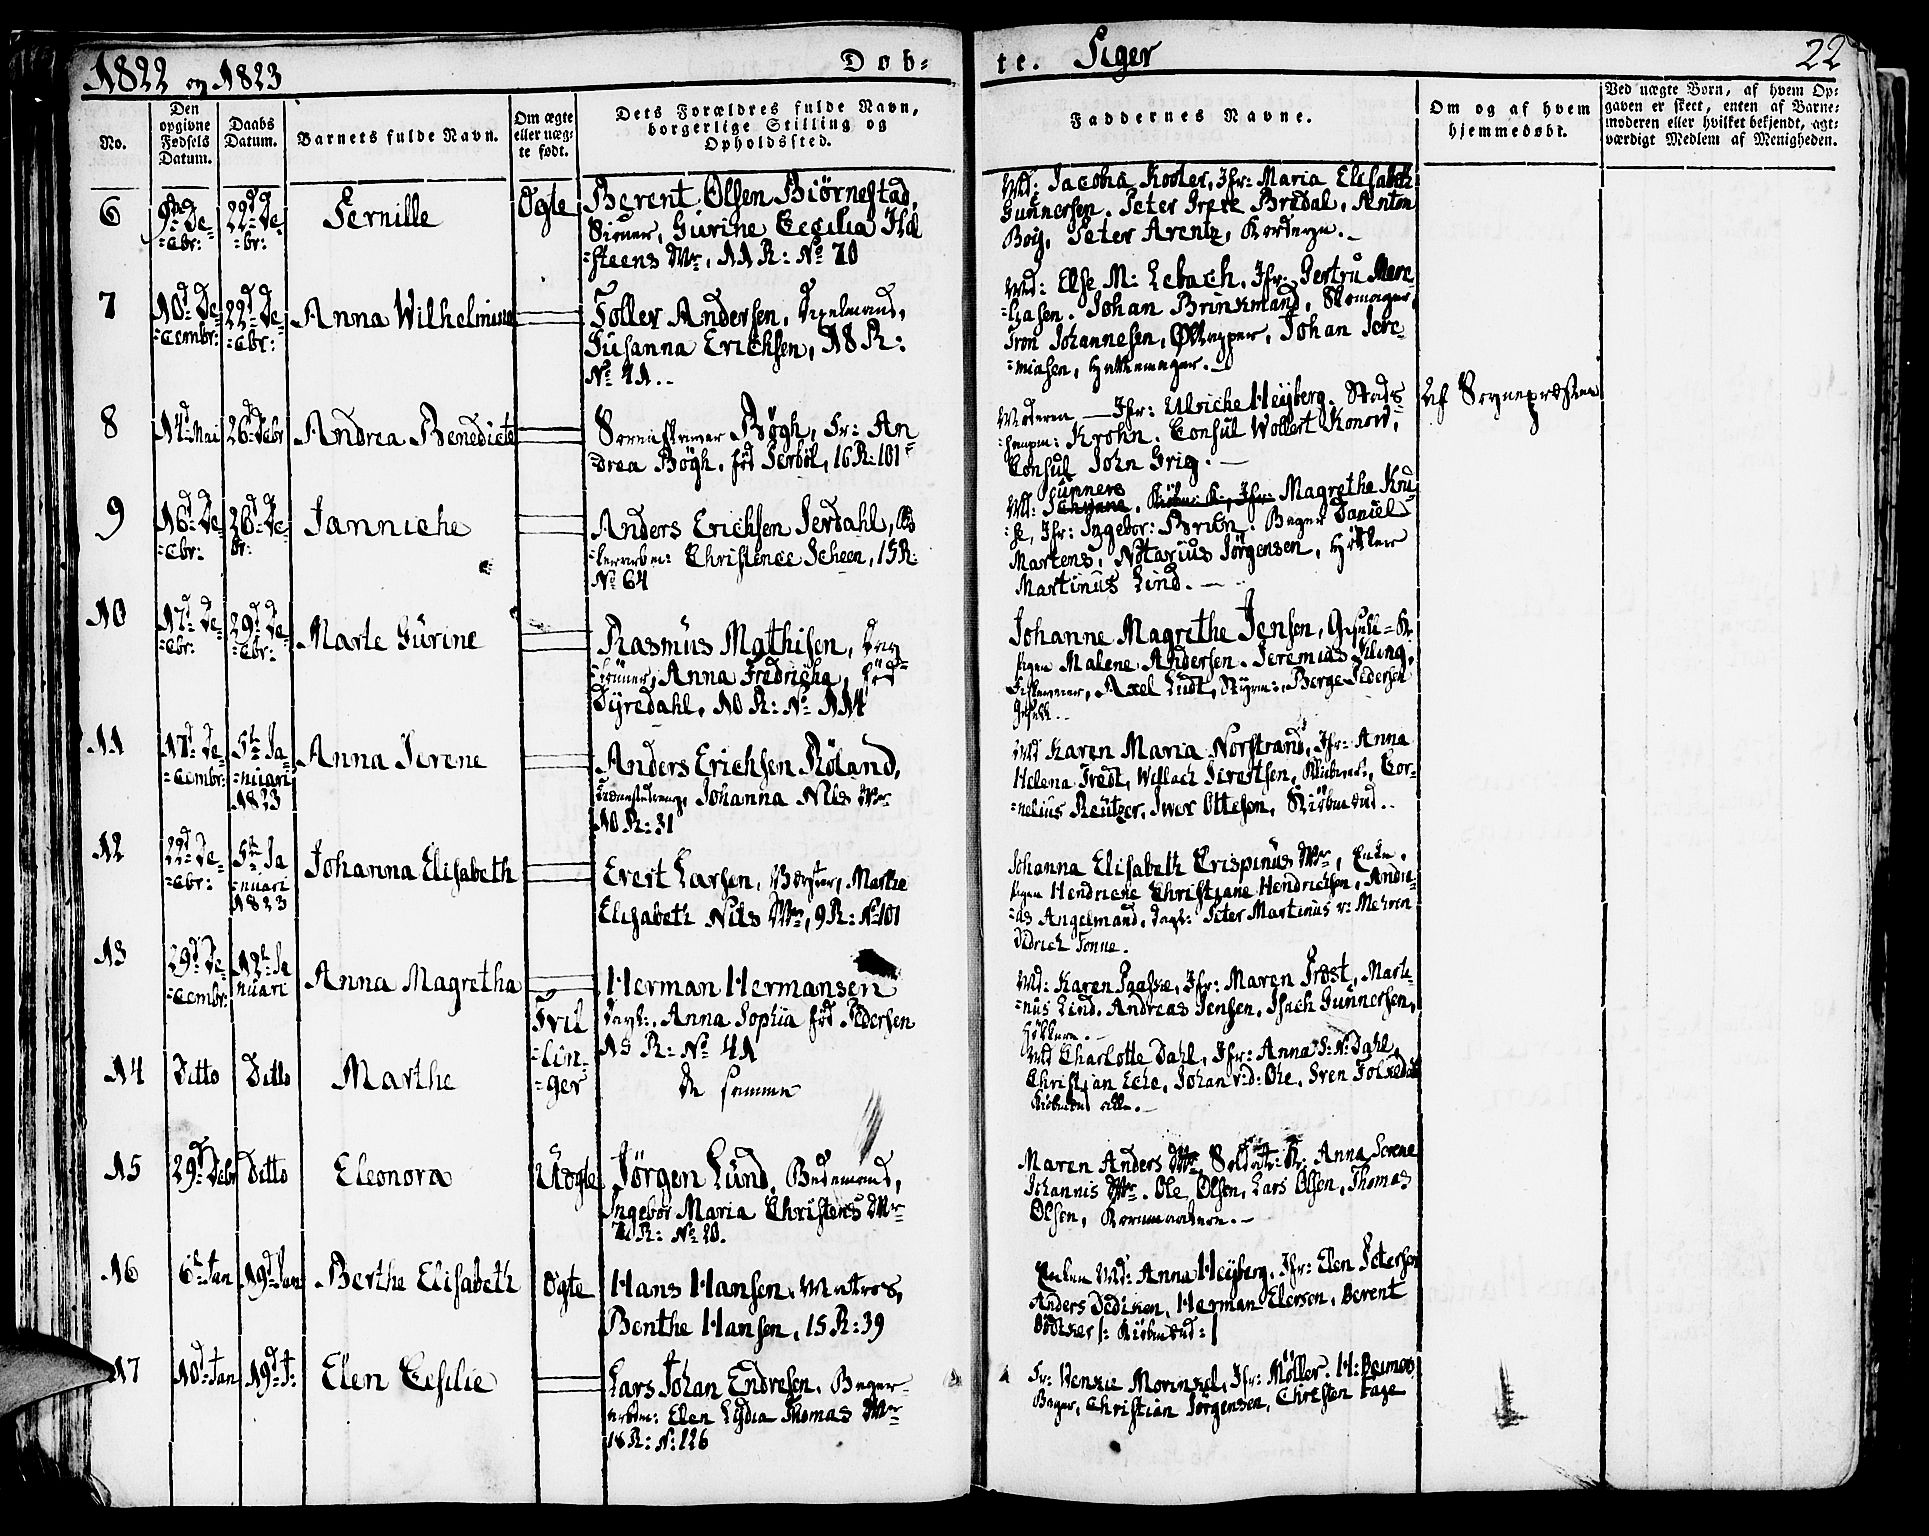 1822 og 1823
Døb-
te. Piger
22
No.
Den opgivne Fødsels Datum.
Daabs Datum.
Barnets fulde Navn.
Om ægte eller uægte født.
Dets Forældres fulde Navn, borgerlige Stilling og Opholdssted.
Faddernes Navne.
Om og af hvem hjemmedøbt.
Ved uægte Børn, af hvem Opgaven er skeet, enten af Barnemoderen eller hvilket bekjendt, agtværdigt Medlem af Menigheden.
6
9de De-
-cbr:
22d De-
-br:
Pernille
Ægte
Berent Olsen Biørnestad,
Gurine Cecilia Hol
-steens Dtr, 11 R: No 70
Md: Jacobia Koster, Jfr: Maria Elisabeth
Gunnersen. Peter Greve Bredal, Anton
Boy, Peter Arentz,
7
10d De-
-cembr:
22d De-
-cbr:
Anna Wilhelmina
Toller Andersen,
Susanna Erichsen, 18 R:
No 41.
Md: Else M: Lebach, Jfr: Gertru Mere
Johan Brinkmand, Skomager,
Tron Johannesen, Øltapper, Johan Jere-
-miasen, Hattemager.
8
14d Mai
26d Decbr
Andrea Benedicte
Bøgh, Fr: An-
drea Bøgh, fød Serbøl, 16 R: 101
Moderen — Jfr: Ulriche Heyberg. Stads-
Krohn. Consul Wollert Konow,
Consul John Grieg.
Af Sognepræsten
9
16d De-
-cbr:
26d De-
br:
Janniche
Anders Erichsen Jerdahl,
Christence Scheen, 15 R:
No 64
Md: Magrethe Kru-
-se, Jfr: Ingebor: Brun. Bager Daniel
Martens, Notarius Jørgensen, Høkker
Martinus Lind.
10
17d De-
-cbr:
29d De-
-cbr:
Marte Gurine
Rasmus Mathisen, Dag
-lønner, Anna Fredricha, fød
Dyredahl, 10 R: No 114
Johanne Magrethe Jensen,
Pigen Malene Andersen. Jeremias Kling,
Axel Ludt, Styrm:, Berge Pedersen
11
17d De-
-cembr:
5te Ja-
-nuari
1823
Anna Serene
Anders Erichsen Røland,
Johanna Nils Dtr
10 R: 31
Md Karen Maria Norstrand, Jfr: Anna
Helena Tredt, Wislach Sivertsen, Cor-
-nelius Reutzer, Iwer Ottesen, Kiøbmænd.
12
22d De-
-cbr:
5te Ja
-nuari
1823
Johanna Elisabeth
Evert Larsen, Marthe
Elisabeth Nils Dtr, 9 R: No 101
Johanna Elisabeth Crispinus Dtr, Enke.
Pigen Hendriche Christiane Hendrichsen, Andre-
-as Angelmand, Peter Martinus v: Mehren
Didrich Tonne.
13
29d De-
-cembr:
12te Ja
nuari
Anna Magretha
Tvil
-lin-
-ger
Herman Hermansen
Anna Sophia fød Pedersen
15 R: No 41
Md: Karen Paaske, Jfr: Maren Frost, Marti-
-nus Lind. Andreas Jensen, Isach Gunnersen,
Høkkere.
14
Ditto
Ditto
Marthe
de samme
Md Charlotte Dahl, Jfr: Anna S: N: Dahl,
Christian Eche, Johan v: d: Ohe, Sven Folkedal
Kiøbmænd alle.
15
29d Decbr
Ditto
Eleonora
Uægte
Jørgen Lund,
Ingebor Maria Christens Dtr
No 20.
Maren Anders Dtr, Anna Serene
Johannis Dtr. Ole Olsen, Lars Olsen, Thomas
Olsen,
16
6te Jan
19d Jan
Berthe Elisabeth
Ægte
Hans Hansen, Matros,
Benthe Hansen, 15 R: 39
Enken Md: Anna Heyberg, Jfr: Elen Petersen
Anders Dediken, Herman Elersen, Berent
Bødtker /: Kiøbmænd: /
17
10d Jan
19d J:
Elen Cecilie
Lars Johan Endresen, Bager-
arbm: Elen Lydia Thomas Dtr
18 R: N: 126
Fr: Wenke Jfr: Møller. H: Reimers
Bager, Christian Jørgensen, Christen Fage